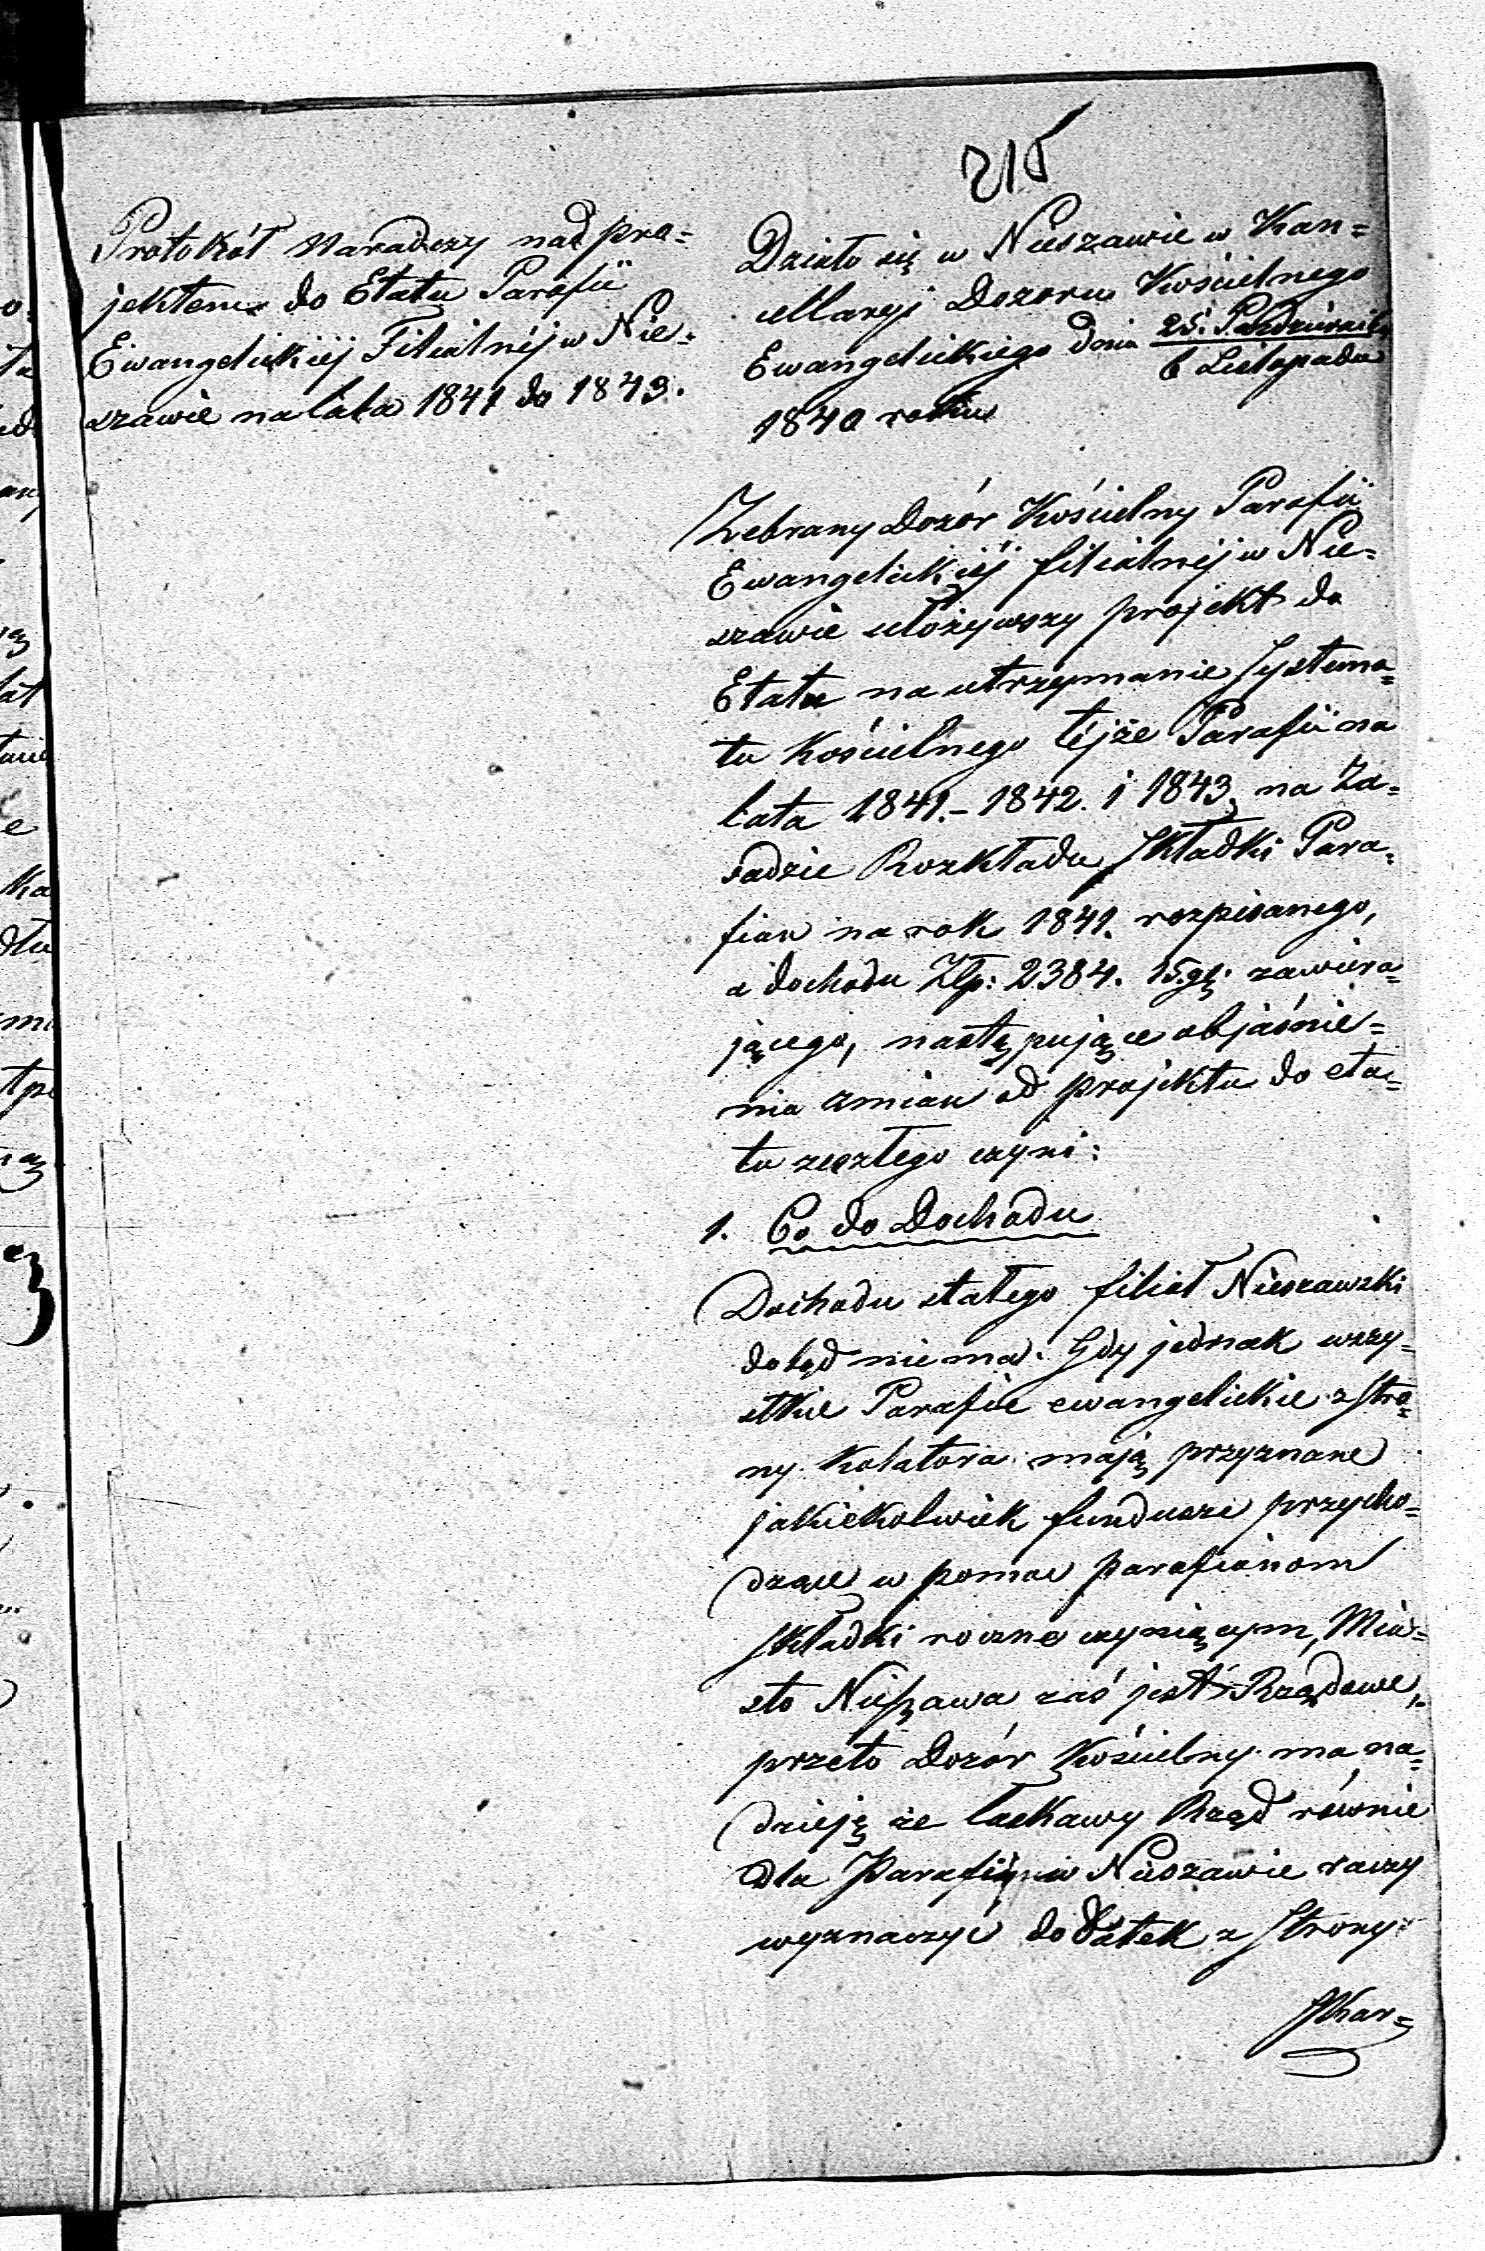 215
Protokół Naradczy nad pro=
jektem do Etatu Parafii
Ewangelickiéj Filialnéj w Nie=
szawie na lata 1841 do 1843.
Działo się w Nieszawie w Kan=
cellaryi Dozoru Kościelnego
Ewangelickiego dnia 25. Października
6 Listopada
1840 roku
Zebrany Dozór Kościelny Parafii
Ewangelickiéj filialnéj w Nie=
szawie ułożywszy projekt do
Etatu na utrzymanie Systema=
tu Kościelnego téjże Parafii na
lata 1841.– 1842. i 1843, na Za=
sadzie Rozkładu Składki Para=
fian na rok 1841. rozpisanego,
a dochodu Złp: 2384. 15.gr: zawiera=
jącego, następujące objaśnie=
nia zmian od projektu do eta=
tu zeszłego czyni:
1. Co do Dochodu
Dochodu stałego filiał Nieszawski
dotąd niema. Gdy jednak wszy=
stkie Parafie ewangelickie z Stro=
ny Kolatora mają przyznane
jakiekolwiek fundusze przycho=
dzące w pomoc parafianom
Składki roczne czyniącym, Mia=
sto Nieszawa zaś jest Rządowe,
przeto Dozór Kościelny ma na=
dzieję że łaskawy Rząd równie
dla Parafii w Nieszawie raczy
wyznaczyć dodatek z Strony
Skar=